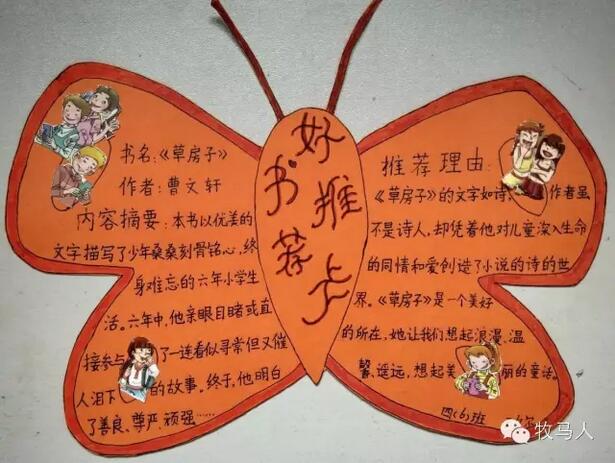 好书推荐卡
书名:《草房子》
作者:曹文轩
内容摘要:本书以优美的
文字描写了少年桑桑刻骨铭心,终
身难忘的六年小学生
活。六年中,他亲眼目睹或直
接参与了一连看似寻常但又催
人泪下的故事。终于,他明白
了善良、尊严、顽强……
推荐理由:
《草房子》的文字如诗,作者虽
不是诗人,却凭着他对儿童深入生命
的同情和爱创造了小说的诗的世
界。《草房子》是一个美好
的所在,她让我们想起浪漫、温
馨、遥远,想起美丽的童话。
四(6)班
牧马人